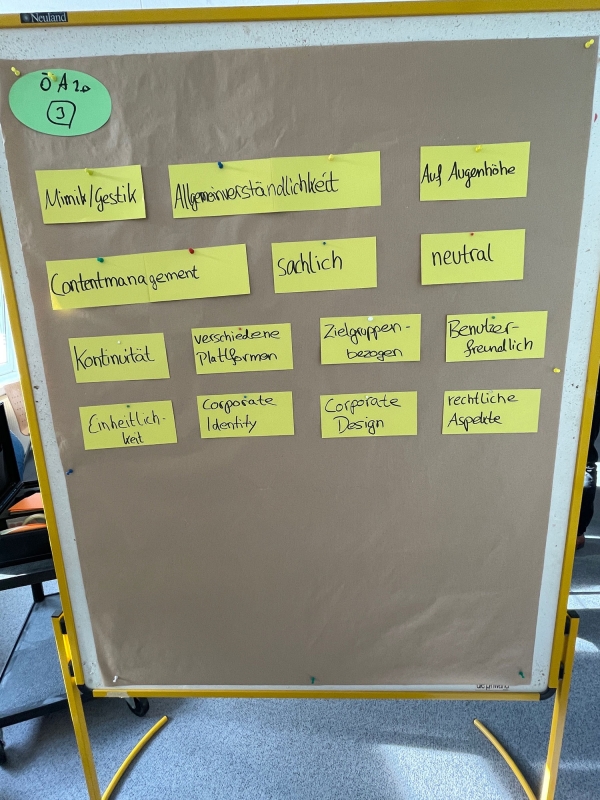 Neuland
ÖA 2.0
3
Mimik/Gestik
Allgemeinverständlichkeit
Auf Augenhöhe
Contentmanagement
sachlich
neutral
Kontinuität
verschiedene
Plattformen
Zielgruppen-
bezogen
Benutzer-
freundlich
Einheitlich-
keit
Corporate
Identity
Corporate
Design
rechtliche
Aspekte